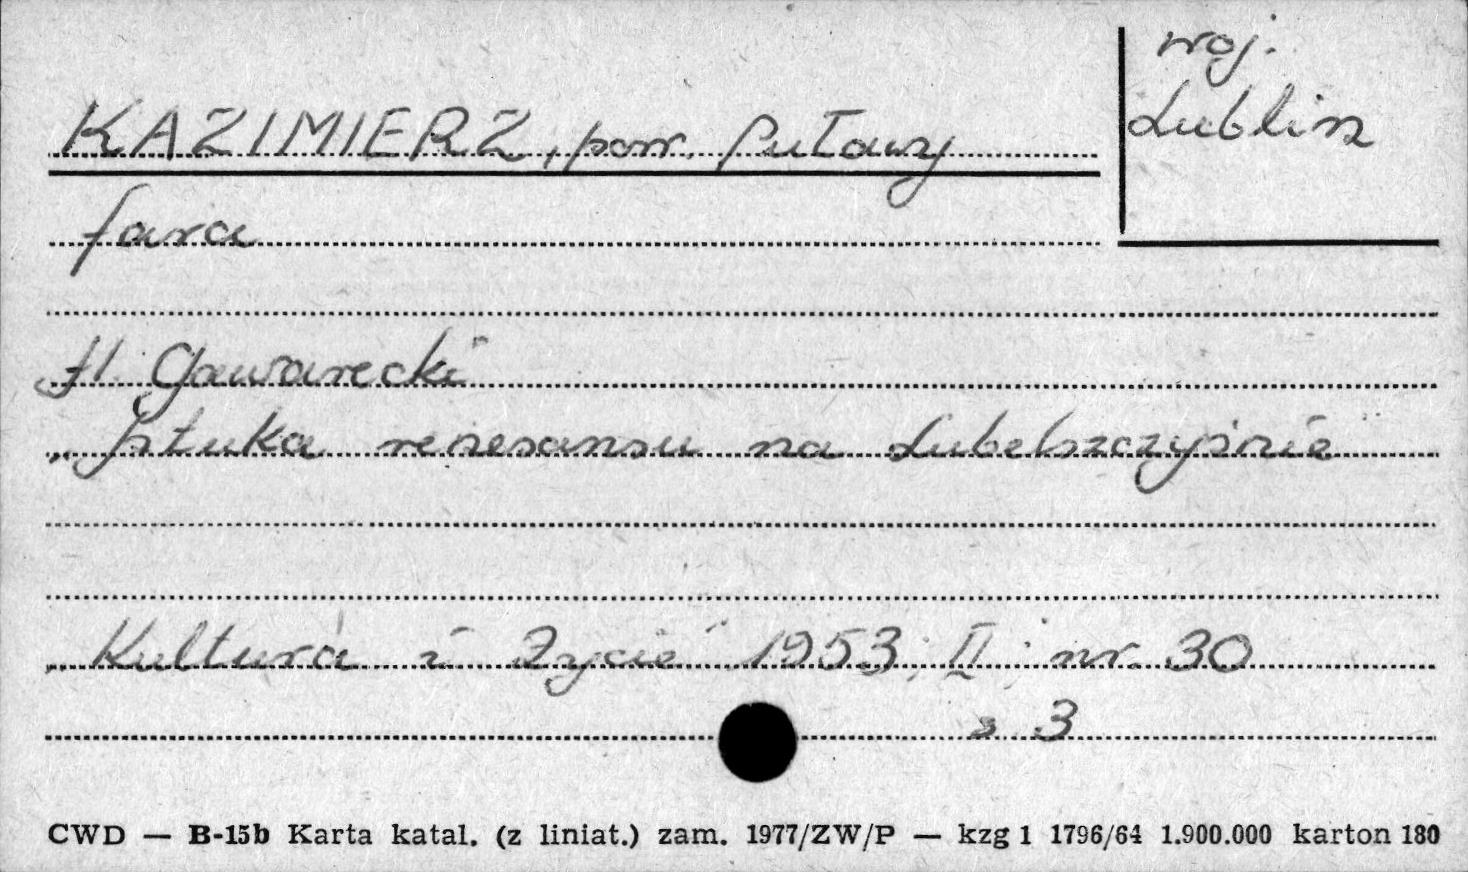 woj.
Lublin
KAZIMIERZ, pow. Puławy
fara
H. Gawarecki
„Sztuka renesansu na Lubelszczyźnie"
„Kultura i Życie" 1953; II; nr. 30
s 3
CWD — B-15b Karta katal. (z liniat.) zam. 1977/ZW/P — kzg 1 1796/64 1.900.000 karton 180